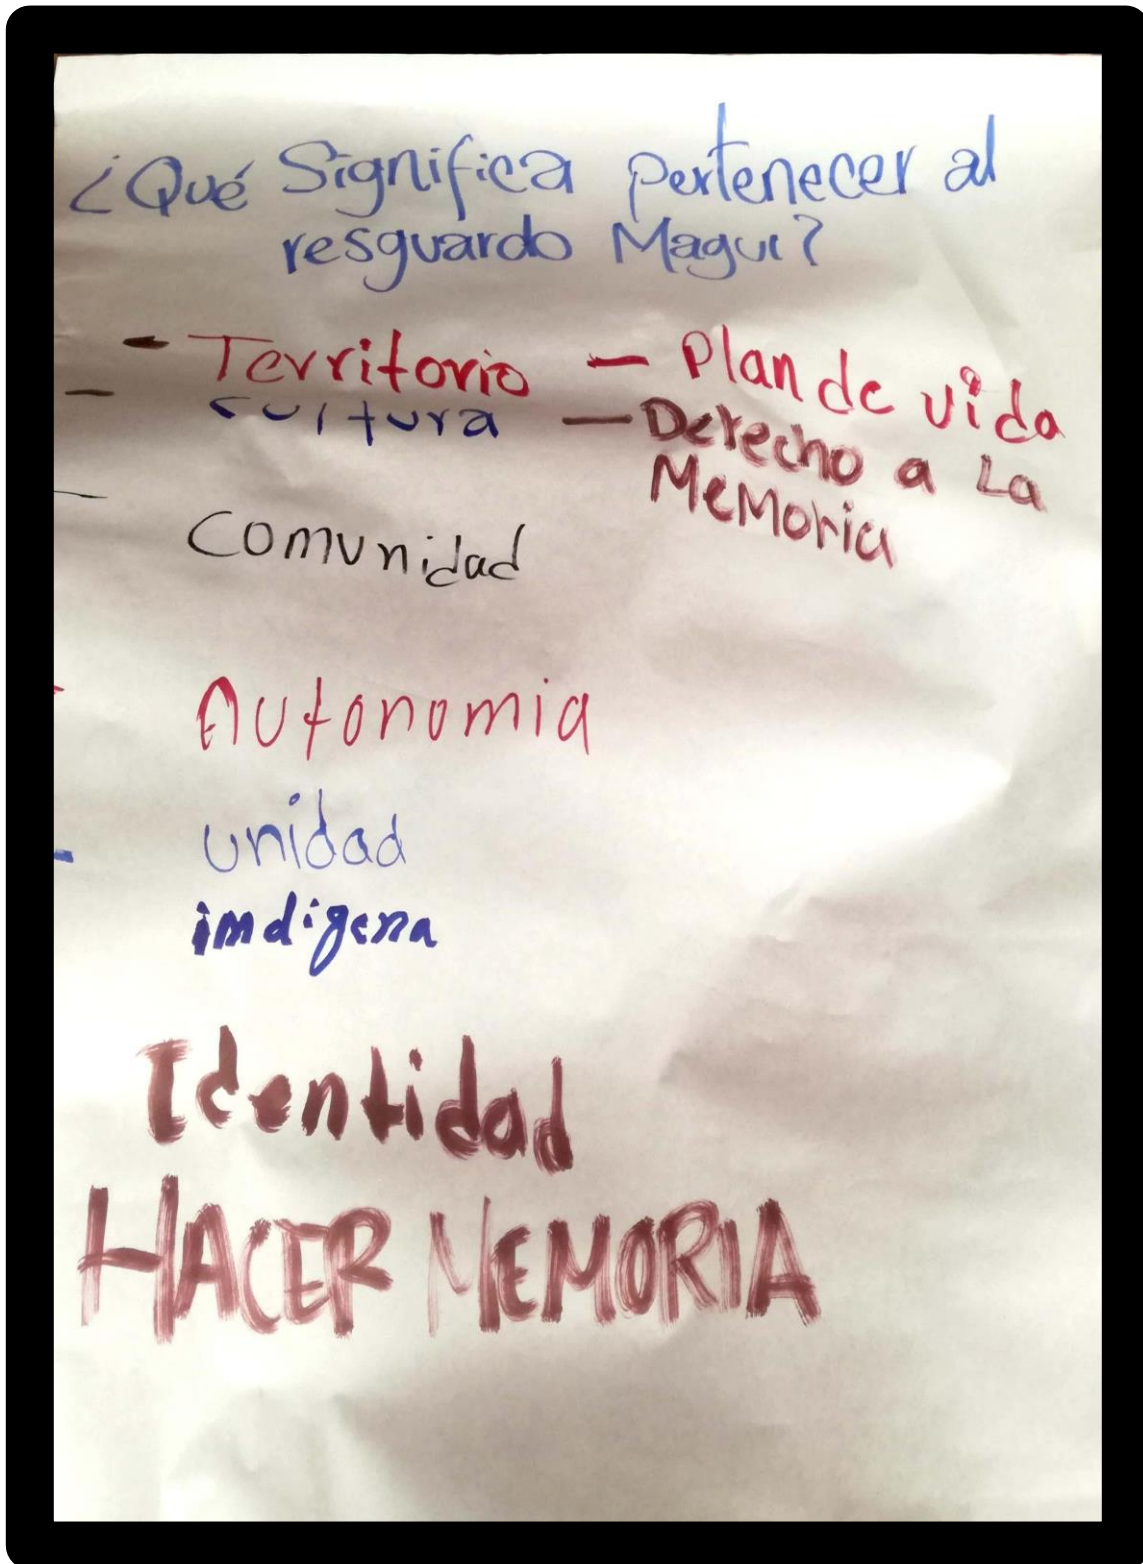 ¿Qué Significa pertenecer al
resguardo Magui?
- Territorio - Plan de vida
- cultura - Derecho a La
Memoria
- Comunidad
- Autonomia
- unidad
imdigena
Identidad
HACER MEMORIA